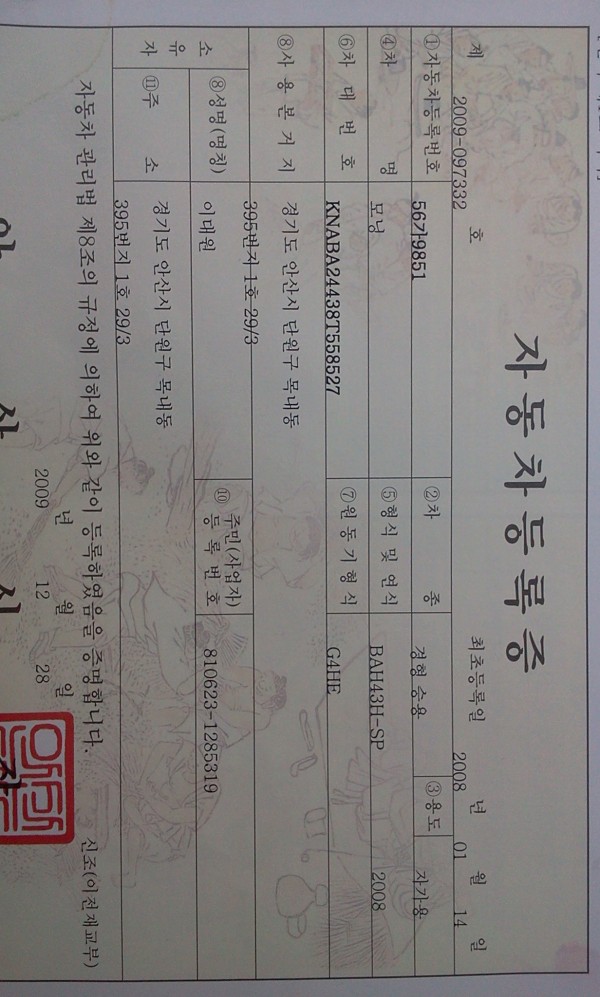 자동차등록증
제 2009-097332 호 최초등록일 2008 년 01 월 14 일
①자동차등록번호 56거9851 ②차 종 경형 승용 ③용도 자가용
④차 명 모닝 ⑤형식 및 연식 BAH43H-SP 2008
⑥차 대 번 호 KNABA24438T558527 ⑦원 동 기 형 식 G4HE
⑧사 용 본 거 지 경기도 안산시 단원구 목내동
395번지 1호 29/3
소 유 자
⑧성명(명칭) 이대원 ⑩주민(사업자) 등 록 번 호 810623-1285319
⑪주 소 경기도 안산시 단원구 목내동
395번지 1호 29/3
자동차 관리법 제8조의 규정에 의하여 위와 같이 등록하였음을 증명합니다. 신조(이전재교부)
2009 년 12 월 28 일
안 산 시 장